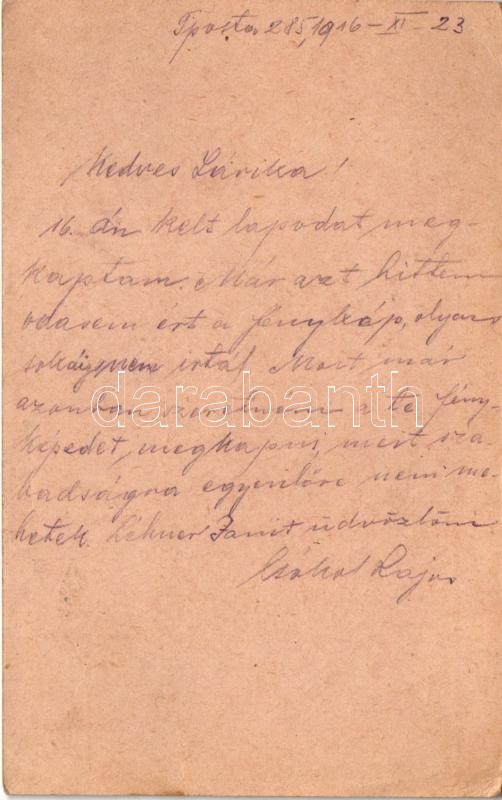 Tposta 285, 1916 - XI - 23
Kedves Sárika!
16. án kelt lapodat meg-
kaptam. Már azt hittem
odasem ért a fénykép, olyan
sokáig nem irtál. Most már
azonban szeretném a te fény-
képedet, megkapni, mert sza-
badságra egyenlőre nem me-
hetek. üdvözlöm
Csókol Lajos
darabanth